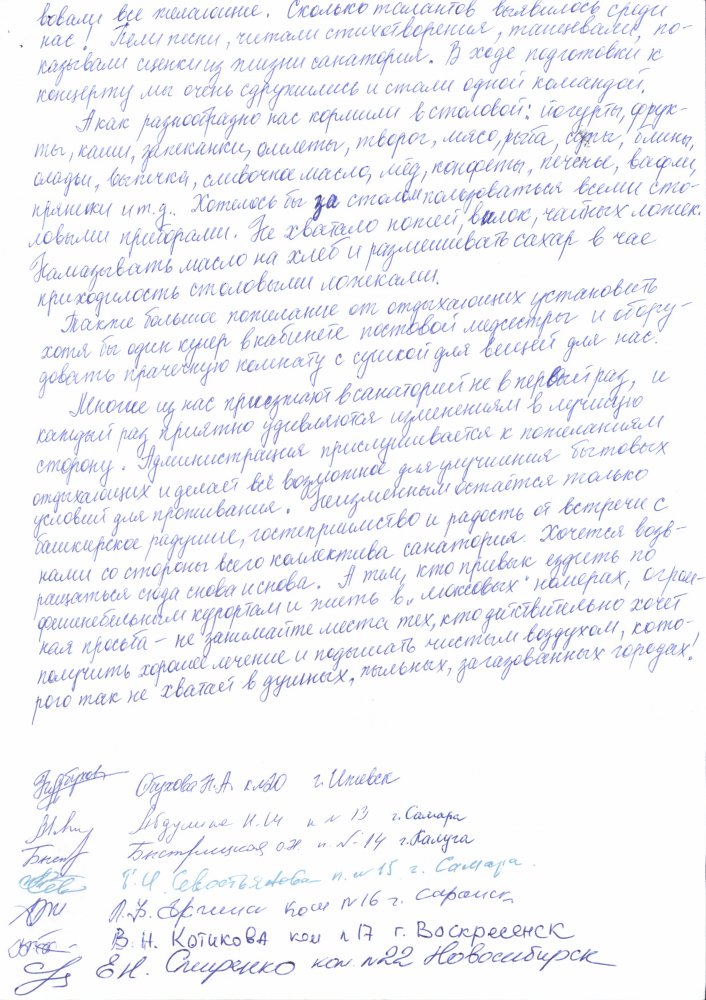 вовали все желающие. Сколько талантов выявилось среди
нас! Пели песни, читали стихотворения, танцевали, по-
казывали сценки из жизни санатория. В ходе подготовки к
концерту мы очень сдружились и стали одной командой.
А как разнообразно нас кормили в столовой: йогурты, фрук-
ты, каши, запеканки, омлеты, творог, мясо, рыба, супы, блины,
оладьи, выпечка, сливочное масло, мёд, конфеты, печенье, вафли,
пряники и т.д.. Хотелось бы за столом пользоваться всеми сто-
ловыми приборами. Не хватало ножей, вилок, чайных ложек.
Намазывать масло на хлеб и размешивать сахар в чае
приходилось столовыми ложками.
Также большое пожелание от отдыхающих установить
хотя бы один кулер в кабинете постовой медсестры и обору-
довать прачечную комнату с сушкой для вещей для нас.
Многие из нас приезжают в санаторий не в первый раз, и
каждый раз приятно удивляются изменениям в лучшую
сторону. Администрация прислушивается к пожеланиям
отдыхающих и делает всё возможное для улучшения бытовых
условий для проживания. Неизменным остаётся только
башкирское радушие, гостеприимство и радость от встречи с
нами со стороны всего коллектива санатория. Хочется возв-
ращаться сюда снова и снова. А тем, кто привык ездить по
фешенебельным курортам и жить в „люксовых" номерах, огром-
ная просьба - не занимайте места тех, кто действительно хочет
получить хорошее лечение и подышать чистым воздухом, кото-
рого так не хватает в душных, пыльных, загазованных городах!
Обухова Н.А. к. №20 г. Ижевск
к. №13 г. Самара
Быстрицкая О.Н. к. №14 г. Калуга
Т.И. Севостьянова к. №15 г. Самара.
ком №16 г. Саранск
В.Н. Котикова ком №17 г. Воскресенск
Е.Н. Смиренко ком. №22 Новосибирск